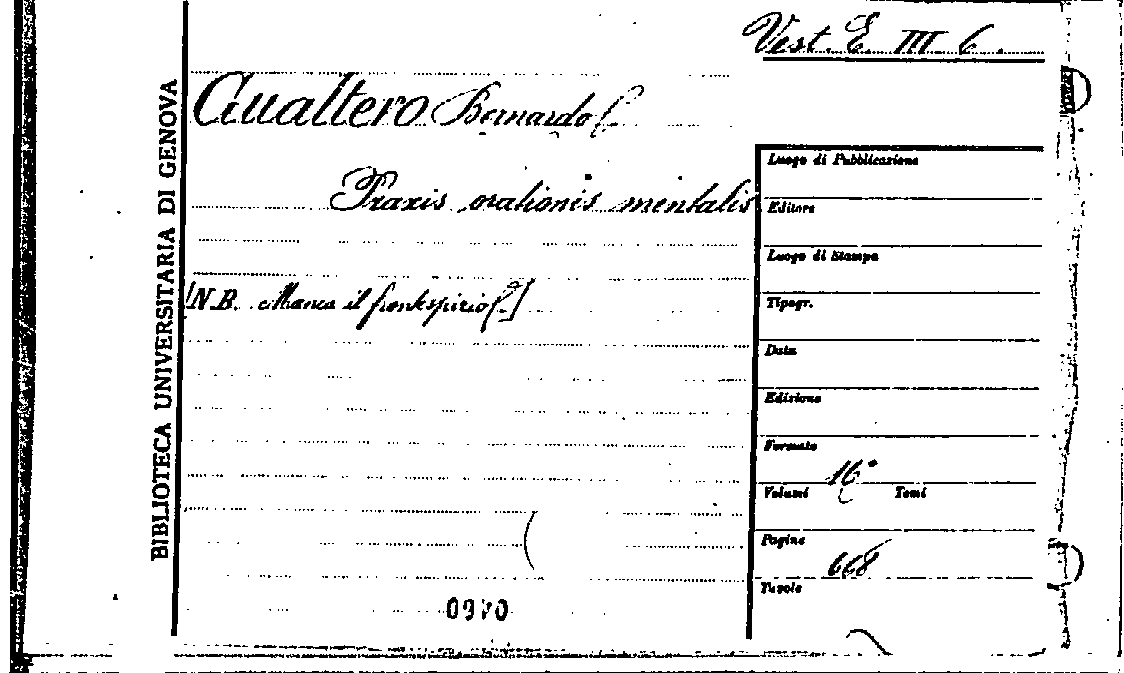 Vest. E. III 6.
BIBLIOTECA UNIVERSITARIA DI GENOVA
Gualtero Bernardo
Praxis orationis mentalis
[N.B. Manca il frontespizio]
Luogo di Pubblicazione
Editore
Luogo di Stampa
Tipogr.
Data
Edizione
Formato
16°
Volumi Tomi
Pagine
668
Tavole
0970